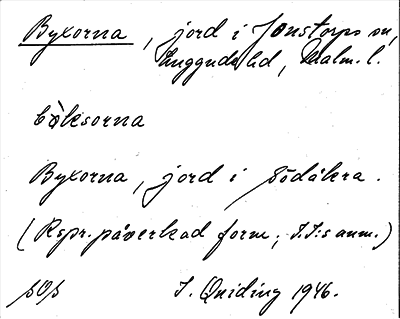 Byxorna, jord i Jonstorps sn,
Luggude hd, Malm. l.
bỳksorna
Byxorna, jord i Södåkra.
(Rspr. påverkad form, I.I:s anm.)
sOs I. Quiding 1946.